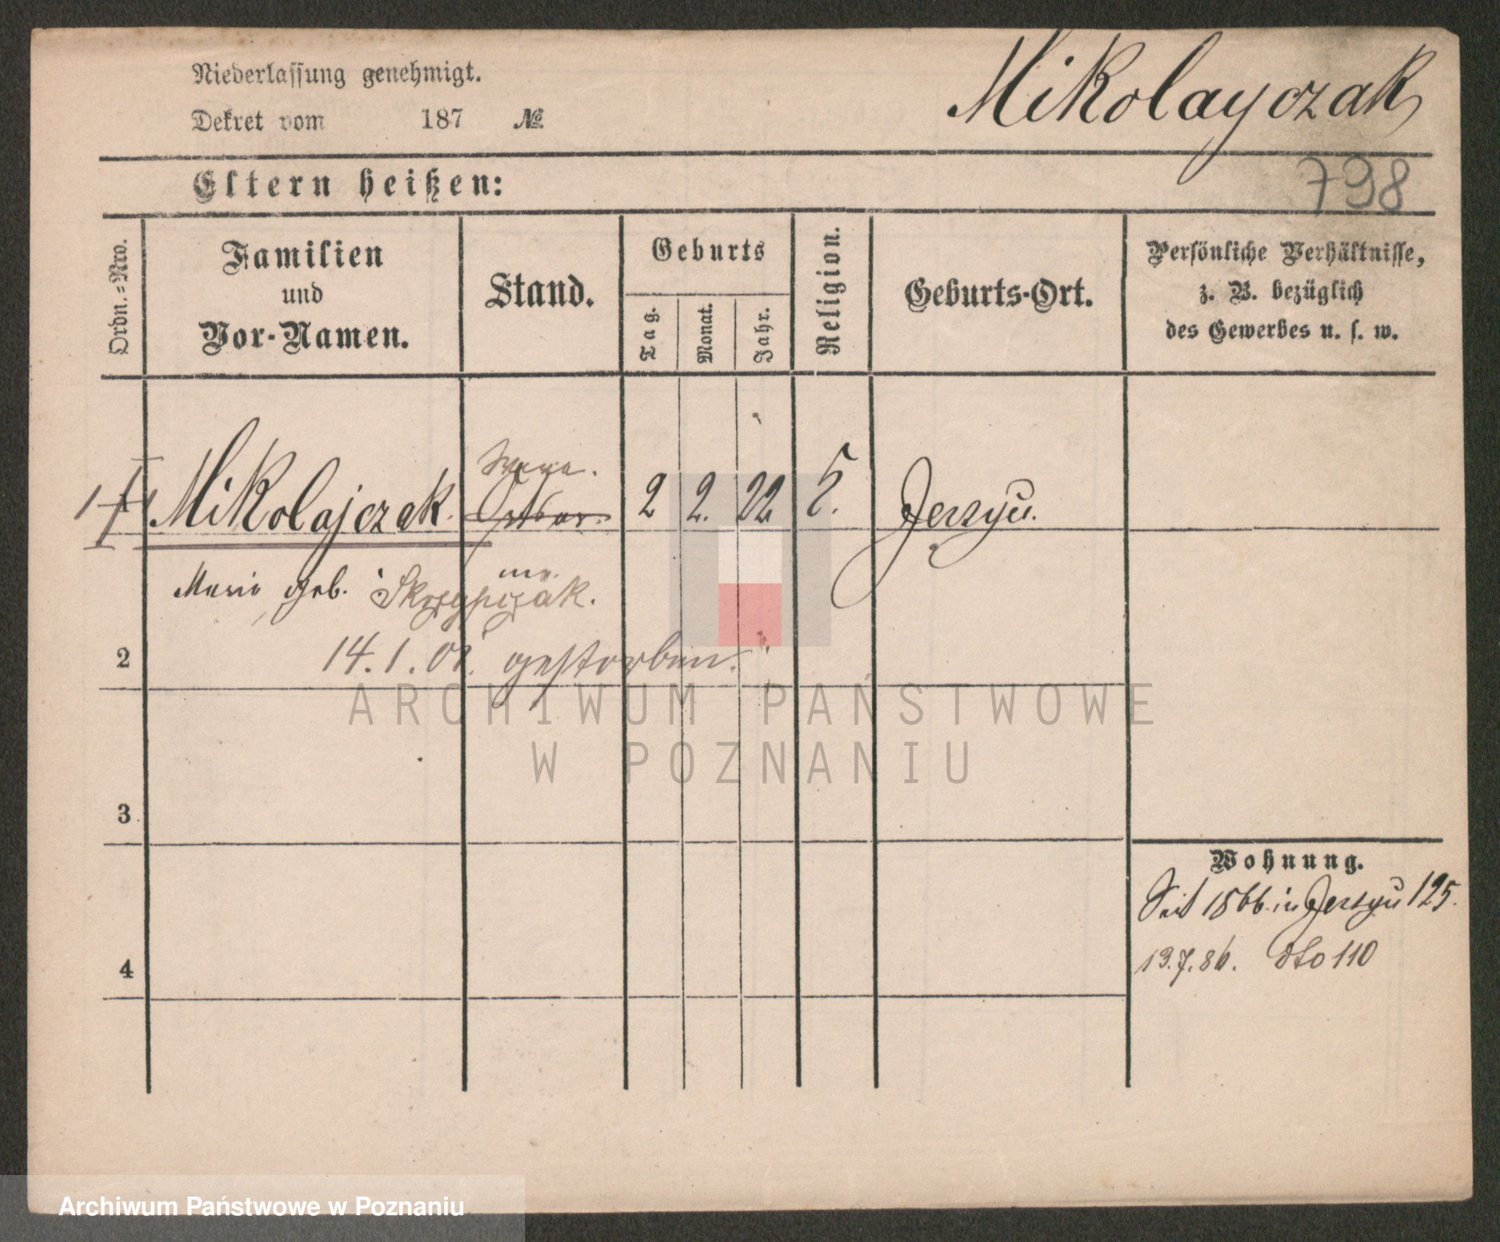 Niederlassung genehmigt.
Dekret vom 187 №
Mikolayczak
798
Eltern heißen:
Ordn.=Nro.
Familien
und
Vor-Namen.
Stand.
Geburts
Tag.
Monat.
Jahr.
Religion.
Geburts-Ort.
Persönliche Verhältnisse,
z. B. bezüglich
des Gewerbes u. s. w.
Mikolajczak 2 2. 22 Jerzyu.
Marie geb. Skrzypczak.
2
14.1.01. gestorben.
3
Wohnung.
Seit 1866 in Jerzyu 125.
13.7.86. dto 110
4
ARCHIWUM PAŃSTWOWE
W POZNANIU
Archiwum Państwowe w Poznaniu